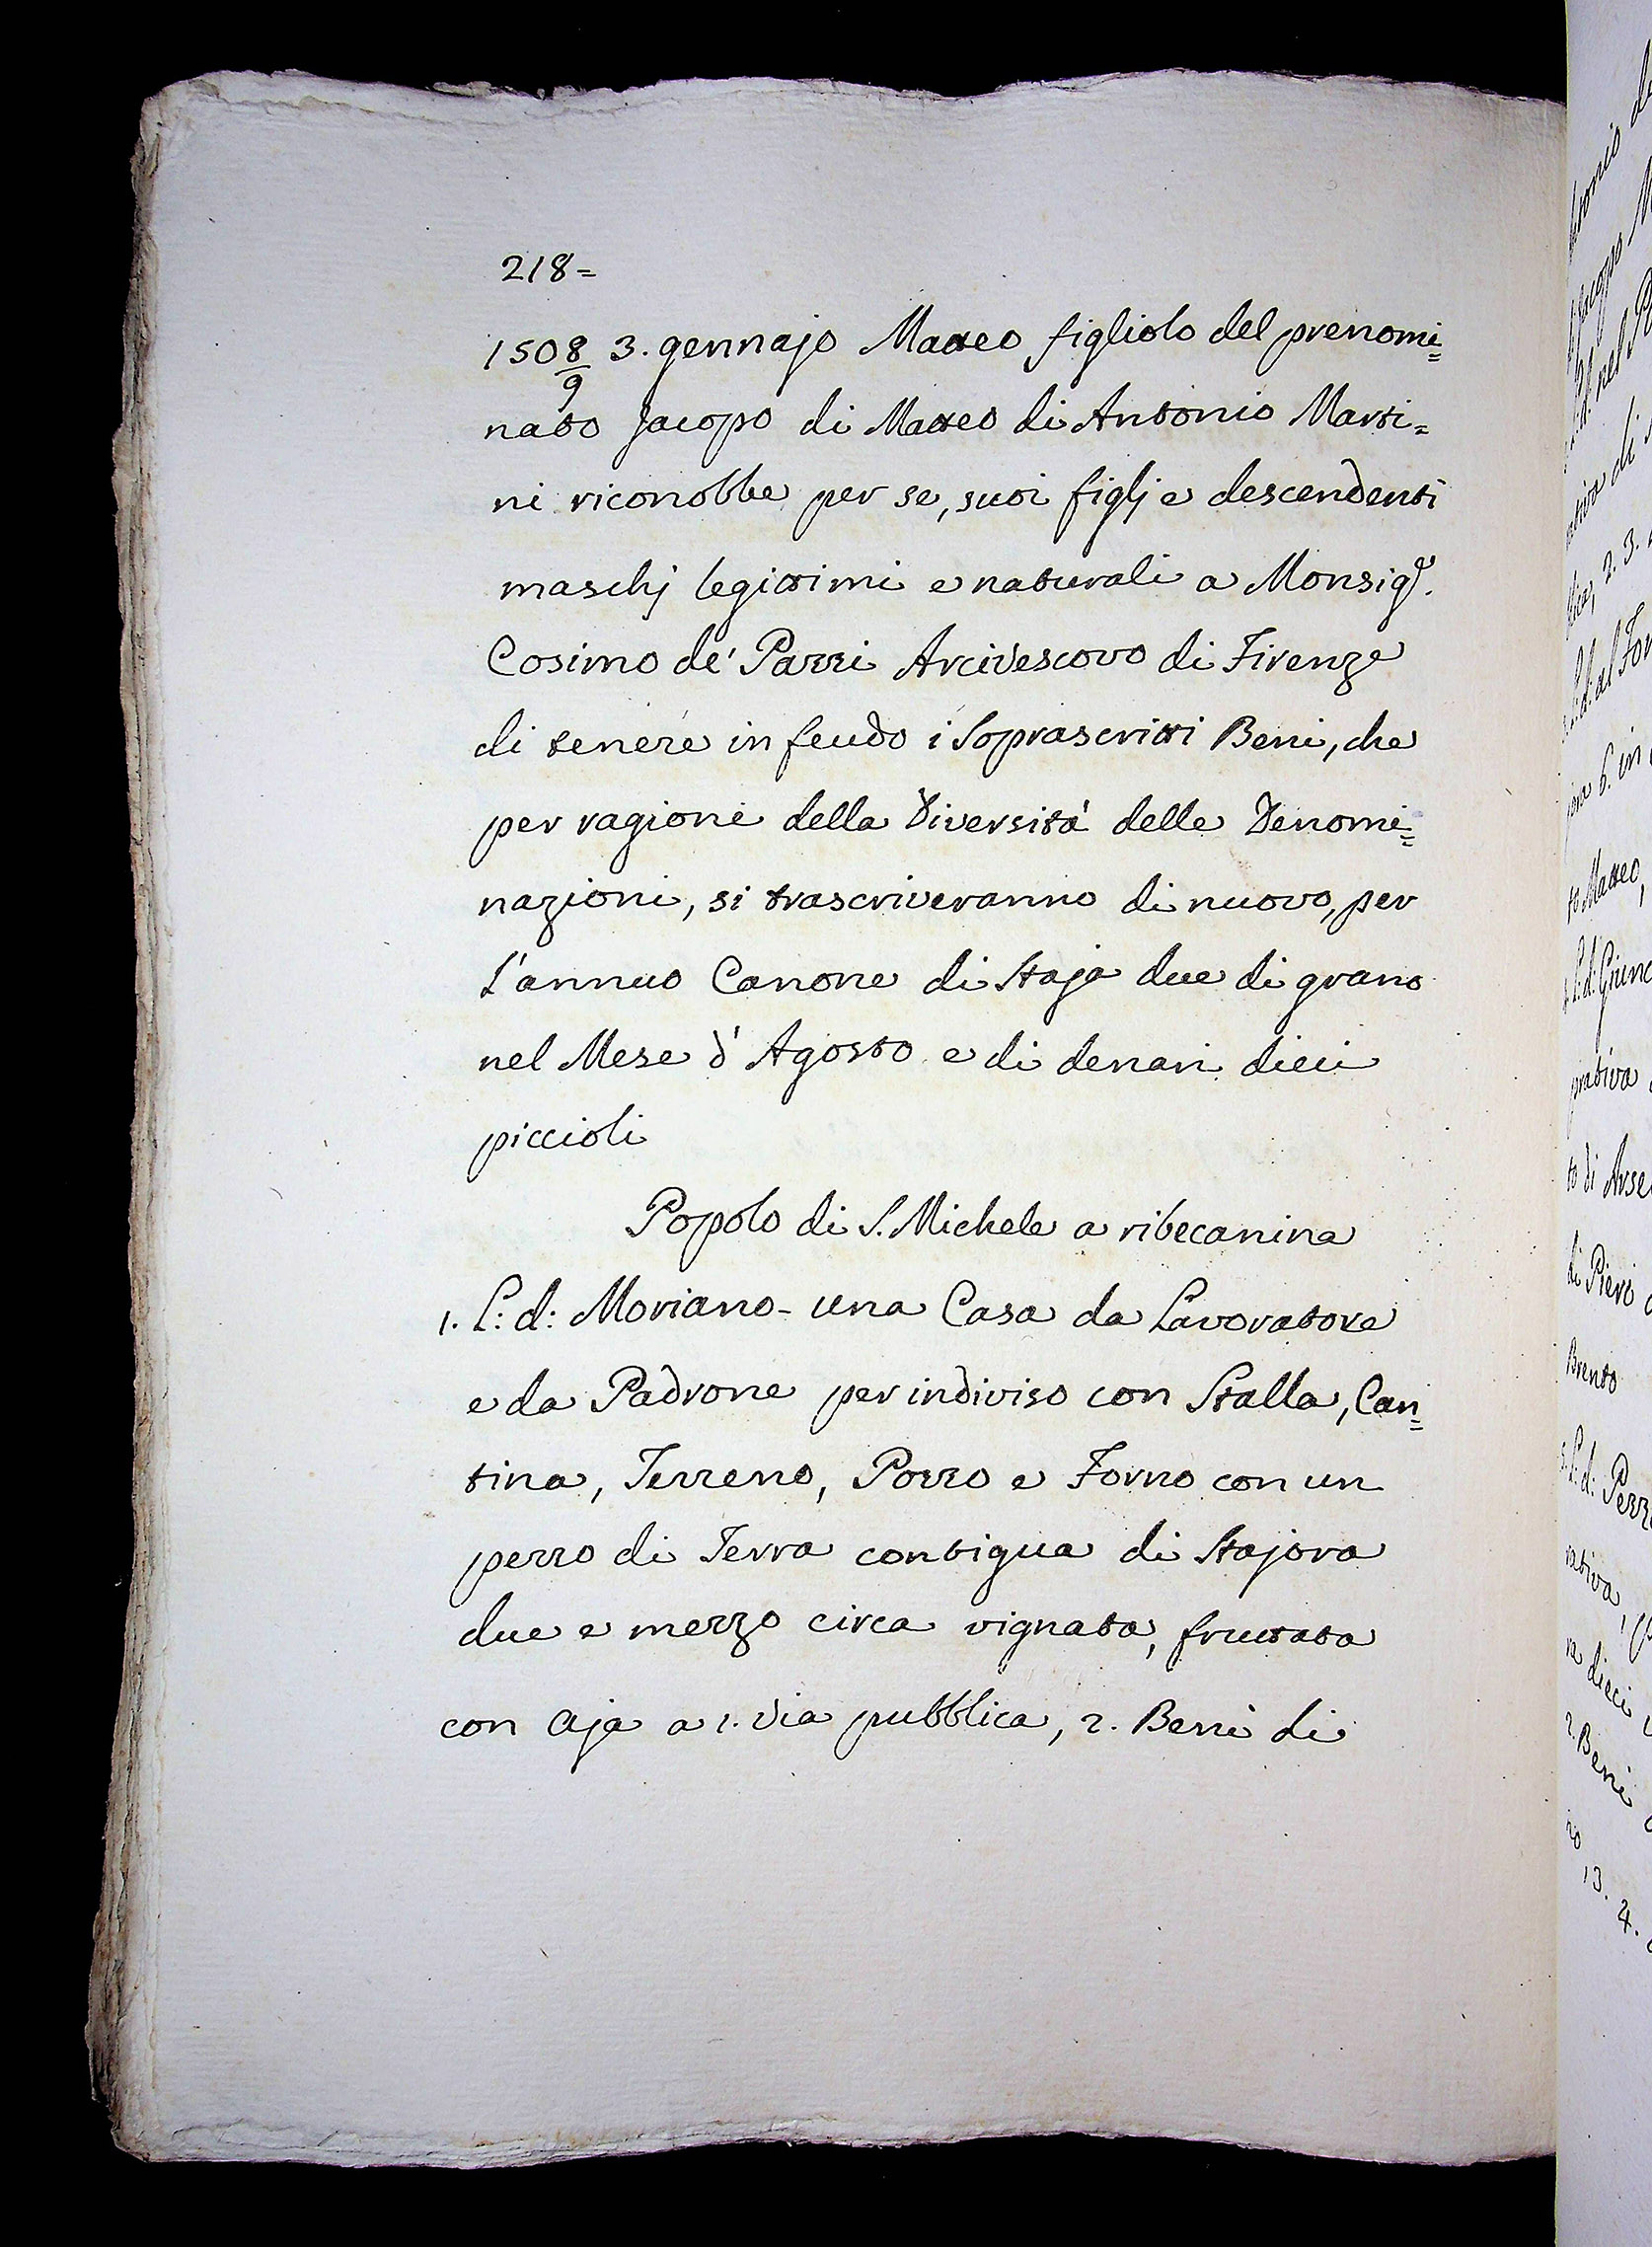 218=
1508/9 3. gennajo Matteo figliolo del prenomi=
nato Jacopo di Matteo di Antonio Marti=
ni riconobbe per se, suoi figlj e descendenti
maschj legittimi e naturali a Monsigr.
Cosimo de' Pazzi Arcivescovo di Firenze
di tenere in feudo i Soprascritti Beni, che
per ragione della Diversità delle Denomi=
nazioni, si trascriveranno di nuovo, per
l'annuo Canone di Staja due di grano
nel Mese d'Agosto e di denari dieci
piccioli
Popolo di S. Michele a ribecanina
1. L: d: Moriano - una Casa da Lavoratore
e da Padrone per indiviso con Stalla, Can=
tina, Terreno, Pozzo e Forno con un
pezzo di Terra contigua di Stajora
due e mezzo circa vignata, fruttata
con Aja a 1. via pubblica, 2. Beni di